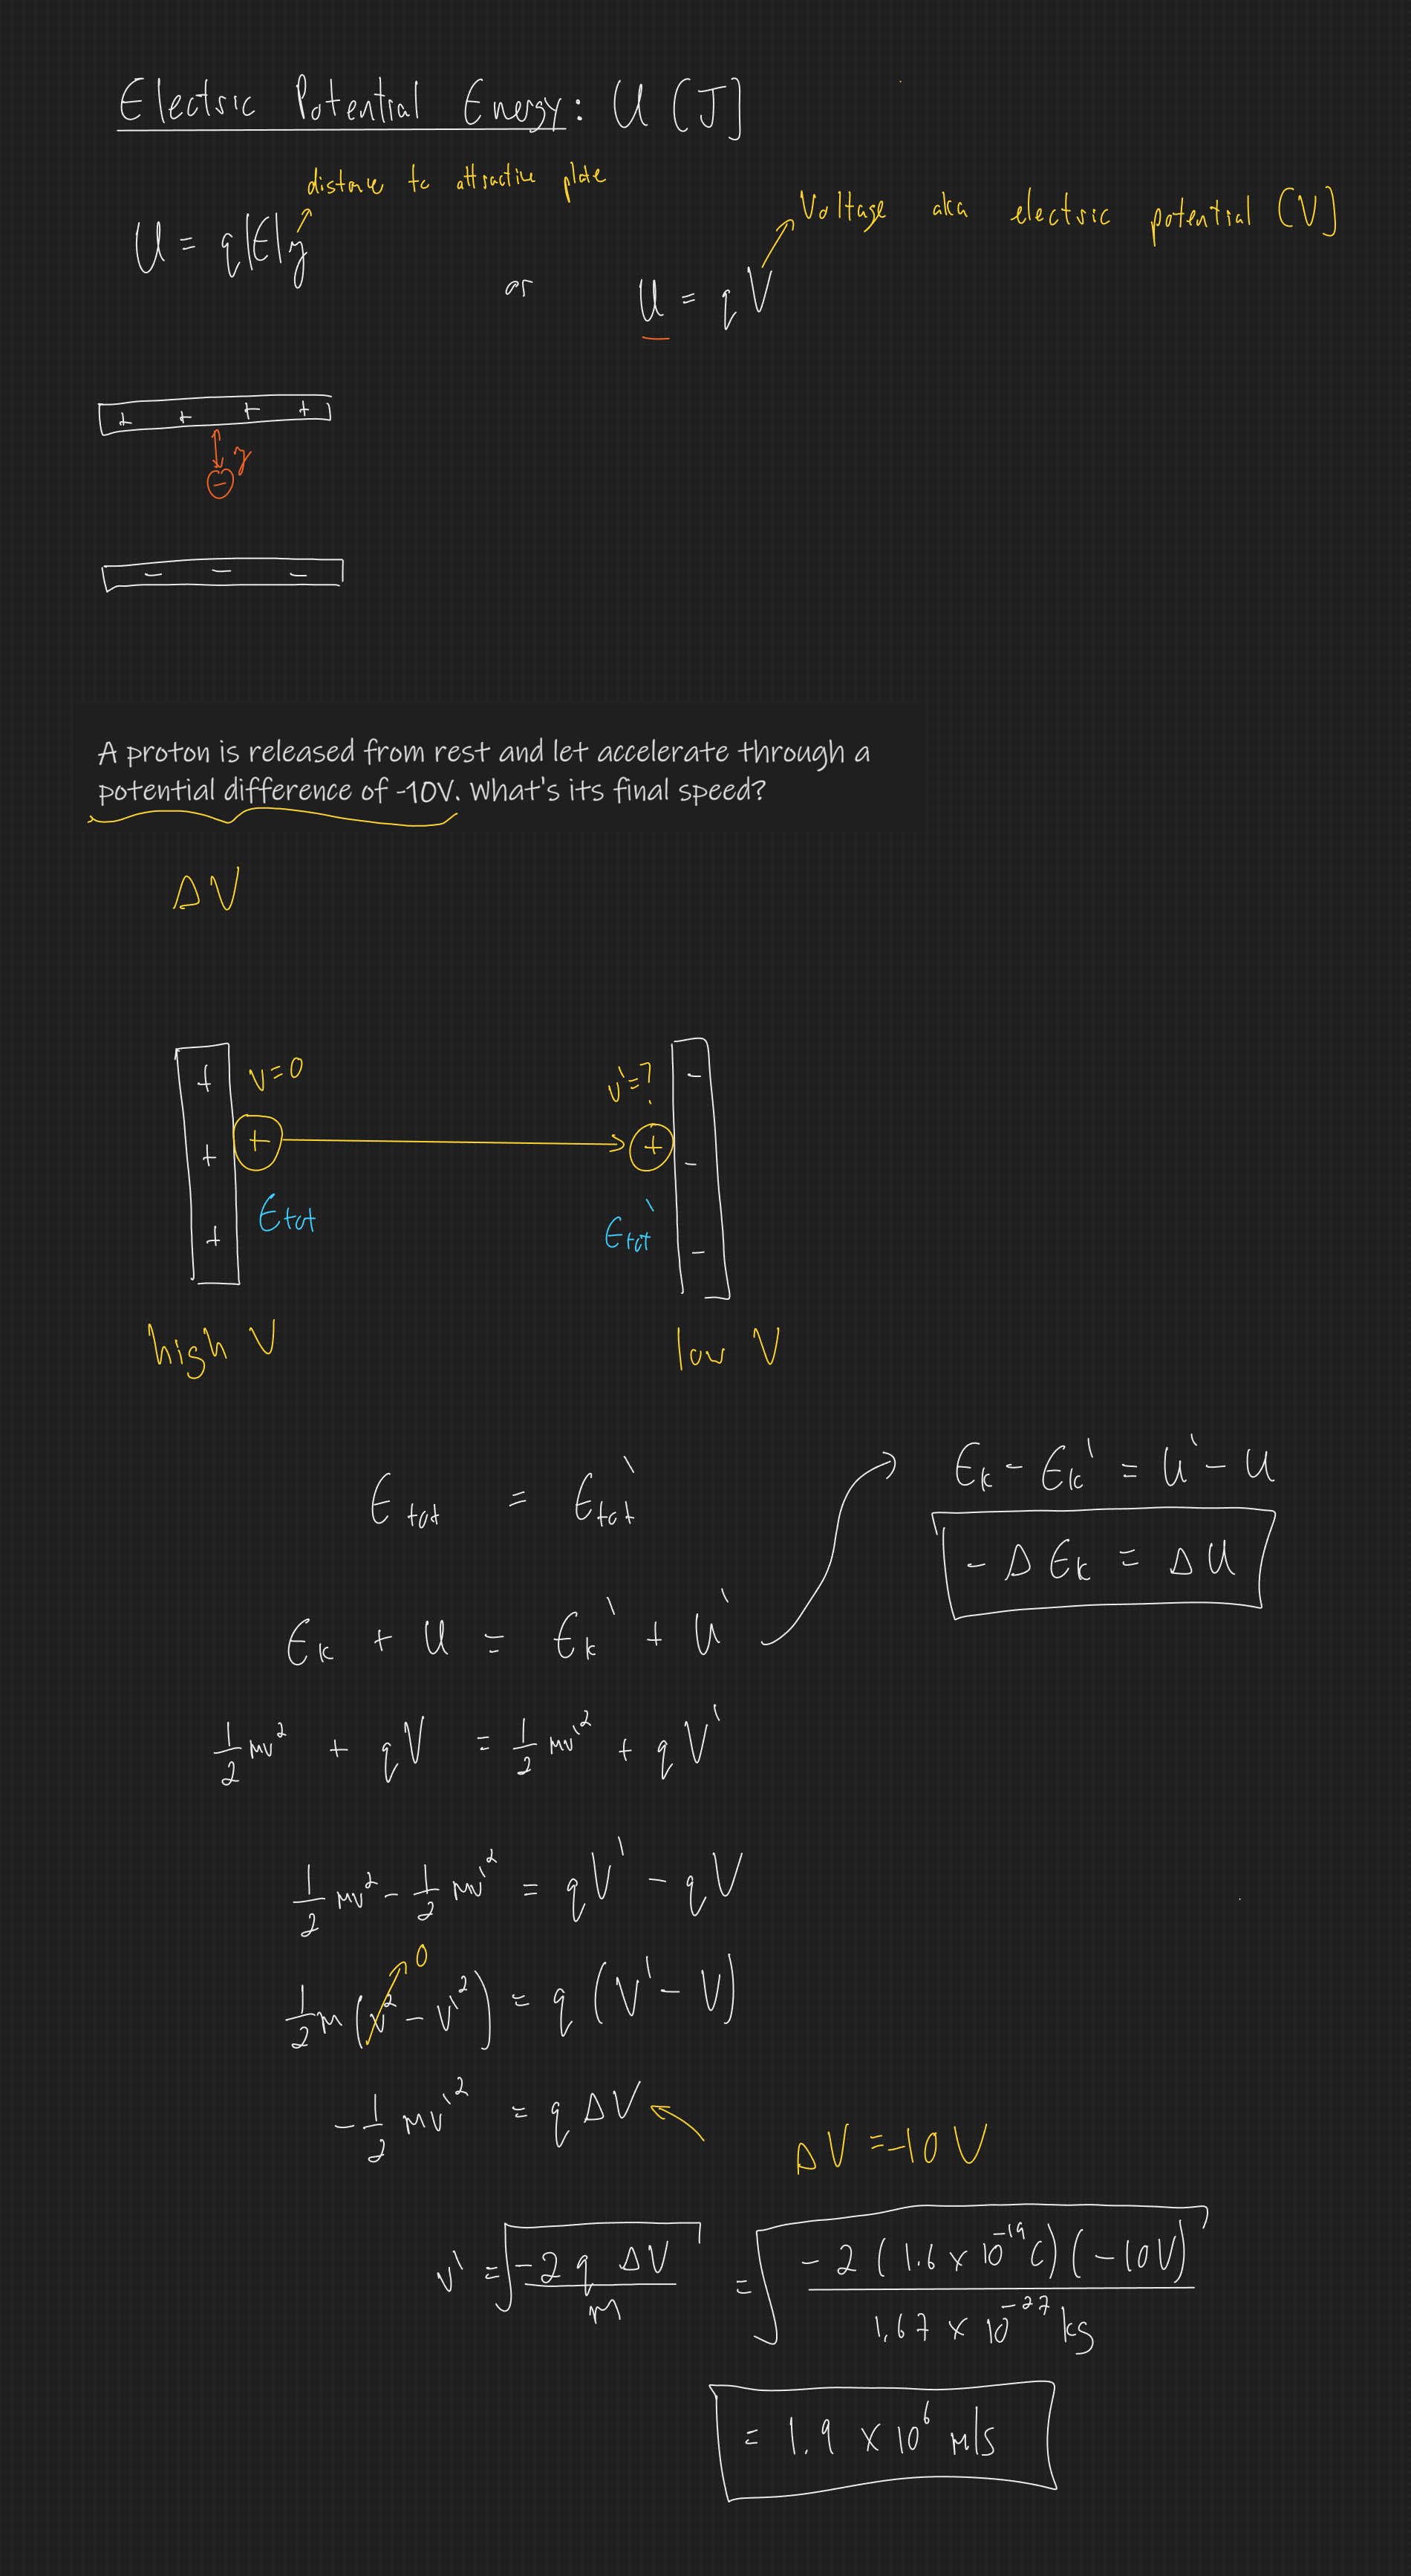 Electric Potential Energy: U [J]
distance to attractive plate
Voltage aka electric potential [V]
U = q|E|y
or
U = qV
+ + + +
y
-
- - -
A proton is released from rest and let accelerate through a
potential difference of -10V. What's its final speed?
ΔV
+ v=0 v'=? -
+ + + -
+ Etot Etot' -
high V low V
Etot = Etot'
Ek - Ek' = U' - U
-ΔEk = ΔU
Ek + U = Ek' + U'
1/2 mv² + qV = 1/2 mv'² + qV'
1/2 mv² - 1/2 mv'² = qV' - qV
0
1/2 m(v² - v'²) = q(V' - V)
-1/2 mv'² = qΔV
ΔV = -10V
v' = √(-2qΔV / m) = √(-2(1.6 x 10⁻¹⁹C)(-10V) / 1.67 x 10⁻²⁷ kg)
= 1.9 x 10⁶ m/s